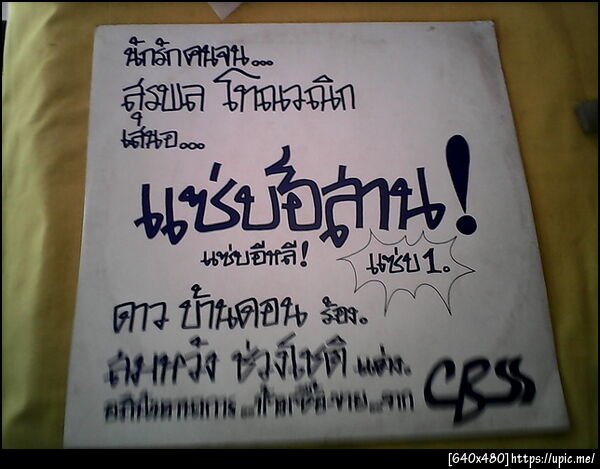 นักรักคนจน...
สุรพล โทณวณิก
เสนอ...
แซ่บอีสาน!
แซ่บอีหลี!
แซ่บ 1.
ดาว บ้านดอน ร้อง.
สมหวัง ช่วงโชติ แต่ง.
CBSS
[640x480]https://upic.me/